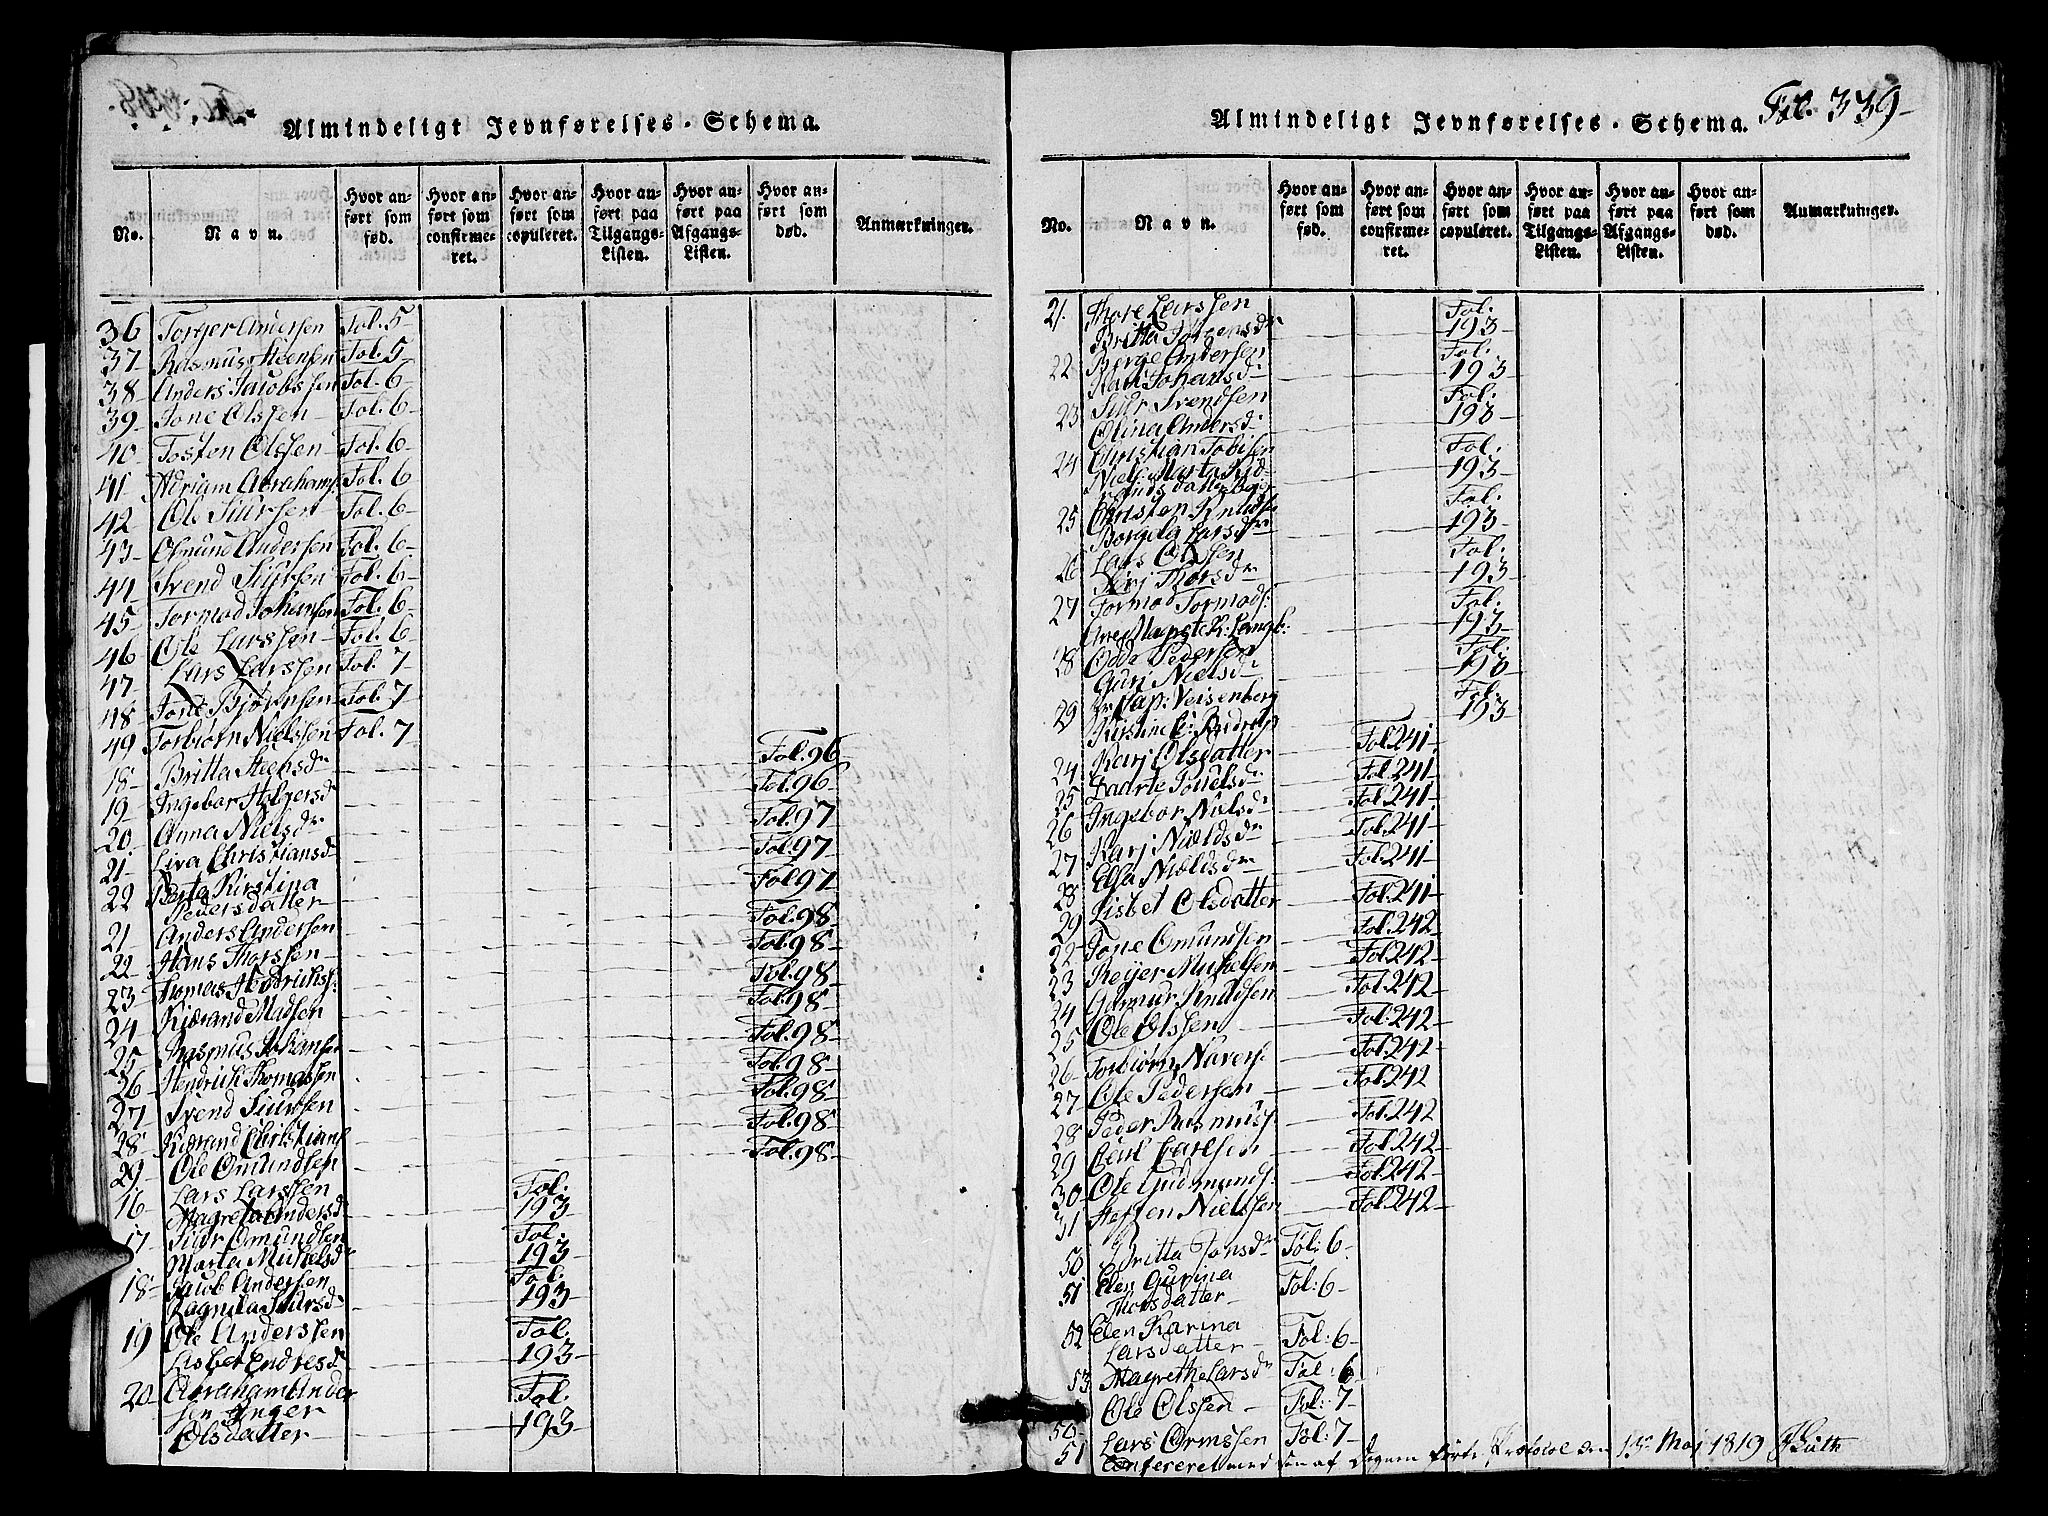 Almindeligt Jevnførelses-Schema.
No. Navn. Hvor anført som fød. Hvor anført som confirmeret. Hvor anført som copuleret. Hvor anført paa Tilgangs-Listen. Hvor anført paa Afgangs-Listen. Hvor anført som død. Anmærkninger.
36 Torger Andersen Fol. 5
37 Rasmus Steensen Fol. 5
38 Anders Jacobssen Fol. 6
39 Tone Olssen Fol. 6
40 Tosten Olssen Fol. 6
41 Adriam Abrahams: Fol. 6
42 Ole Siursen Fol. 6
43 Osmund Andersen Fol. 6
44 Svend Siursen Fol. 6
45 Tormod Johansen Fol. 6
46 Ole Larssen Fol. 6
47 Lars Larssen Fol. 7
48 Tone Bjørnsen Fol. 7
49 Torbiørn Nielssen Fol. 7
18 Britta Steensdr Fol. 96
19 Ingebor Holgersd Fol. 96
20 Anna Nielsdr Fol. 97
21 Siva Christiansd Fol. 97
22 Berta Kirstina Fol. 97
Pedersdatter
21 Anders Andersen Fol. 98
22 Hans Thorssen Fol. 98
23 Thomas Hendrichs: Fol. 98
24 Kidrand Madsen Fol. 98
25 Rasmus Johansen Fol. 98
26 Hendrich Thomassen Fol. 98
27 Svend Siursen Fol. 98
28 Kidrand Christians Fol. 98
29 Ole Omundsen Fol. 98
16 Lars Larssen Fol.
Magreta Andersd 193
17 Siur Omundsen Fol.
Marta Mickelsd 193
18 Jacob Andersen Fol.
Ragnila Siursd 193
19 Ole Anderssen Fol.
Lisbet Endresd 193
20 Abraham Ander Fol.
sen Inger
Olsdatter 193
Almindeligt Jevnførelses-Schema. Fol. 339
No. Navn. Hvor anført som fød. Hvor anført som confirmeret. Hvor anført som copuleret. Hvor anført paa Tilgangs-Listen. Hvor anført paa Afgangs-Listen. Hvor anført som død. Anmærkninger.
21. Thore Larssen Fol:
Britta Torgersdr 193
22 Børge Andersen Fol:
Kari Johansd: 193
23 Siur Svendsen Fol:
Olina Andersd: 193
24 Christian Tobisen Fol:
Niels: Marta Kid 193
rands datter
25 Christen Knuds: Fol:
Borgila Larsdr 193
26 Lars Olssen Fol:
Siri Thorsdr 193
27 Tormod Tormods: Fol:
193
28 Odde Pedersen Fol:
Guri Nielsd: 193
29 Cap: Veisenberg Fol:
Kirstine 193
24 Kari Olsdatter Fol. 241
25 Daarte Pouelsd: Fol. 241
26 Ingebor Nielsd: Fol. 241
27 Kari Nieldsdr Fol. 241
28 Elsa Nieldsdr Fol. 241
29 Lisbet Olsdatter Fol. 241
22 Tone Omundsen Fol. 242
23 Reijer Mickelsen Fol. 242
24 Gunnur Knudsen Fol. 242
25 Ole Olssen Fol: 242
26 Torbiørn Navers: Fol. 242
27 Ole Pedersen Fol. 242
28 Peder Rasmuss: Fol. 242
29 Carl Carlsen Fol. 242
30 Ole Gudmunds: Fol. 242
31 Steffen Nielssen Fol. 242
50 Britta Jonsdr Fol: 6
51 Elen Gurina Fol: 6
Thorsdatter
52 Elen Karina
Larsdatter Fol: 6
53 Magrethe Larsdr Fol: 6
50 Ole Olssen Fol: 7
51 Lars Ormssen Fol: 7
Confereret med den af Degnen førte Protocol den 13de Maj 1819